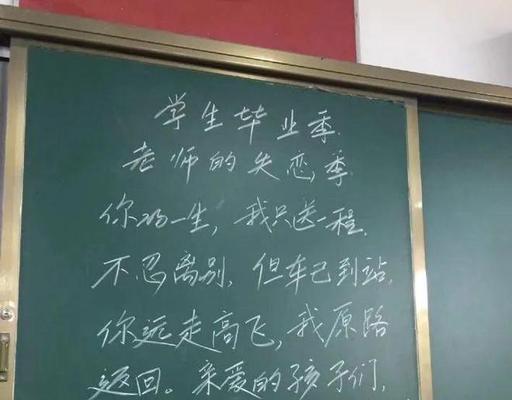 学生毕业季.
老师的失恋季
你的一生，我只送一程.
不忍离别，但车已到站.
你远走高飞，我原路
返回。亲爱的孩子们，